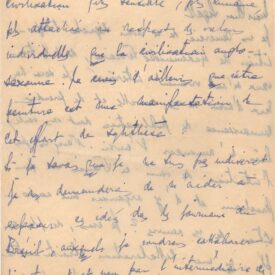 civilisation plus sensible, plus humaine
plus attachée au respect des valeurs
individuelles que la civilisation anglo-
saxonne. Je crois d'ailleurs que votre
peinture est une manifestation de
cet effort de synthèse
Si je savais que je ne suis pas indiscret
je vous demanderai de m'aider à
exposer ces idées dans les journaux du
Brésil, auxquels je voudrais collaborer
par l'intermédiaire